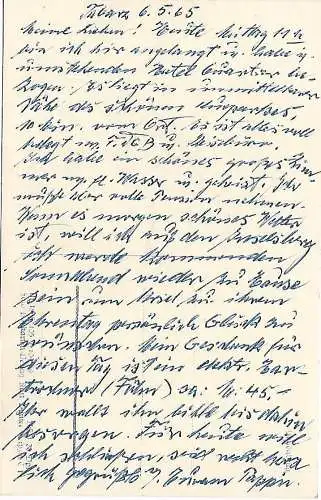 Tabarz 6.5.65
Meine Lieben! Heute Mittag 11 h
bin ich hier angelangt u. habe in
Hotel Quartier be-
zogen. Es liegt in unmittelbarer
Nähe des schönen Kurparkes
10 Min. vom Ort. Es ist alles voll
belegt v. FDGB u.
Ich habe ein schönes großes Zim-
mer m. fl. Wasser u. geheizt. Ich
mußte aber volle Pension nehmen.
Wenn es morgen schönes Wetter
ist, will ich auf den Inselsberg
Ich werde kommenden
Sonnabend wieder zu Hause
sein um Ursel zu ihrem
Ehrentag persönlich Glück zu
wünschen. Mein Geschenk für
diesen Tag ist ein elektr. Har-
trockner (Föhn) ca. M. 45.-
Ihr wollt ihn bitte bis dahin
besorgen. Für heute will
ich schließen, seid recht herz-
lich gegrüßt v. Eurem